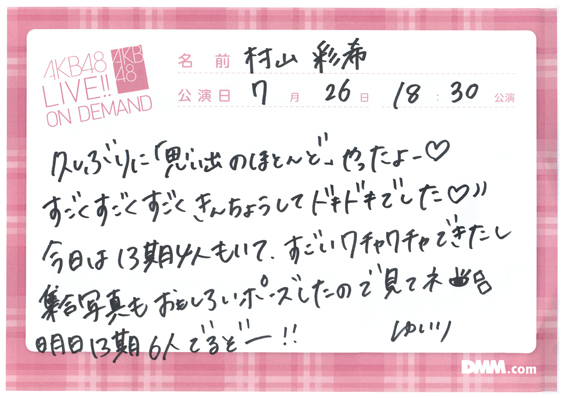 AKB48
LIVE!!
ON DEMAND
AKB
48
名前 村山 彩希
公演日 7月 26日 18:30 公演
久しぶりに「思い出のほとんど」やったよー♡
すごくすごくすごくきんちょうしてドキドキでした♡))
今日は13期4人もいて、すごいワチャワチャできたし
集合写真もおもしろいポーズしたので見てネ
明日13期6人でるぞー!!
ゆいり
DMM.com